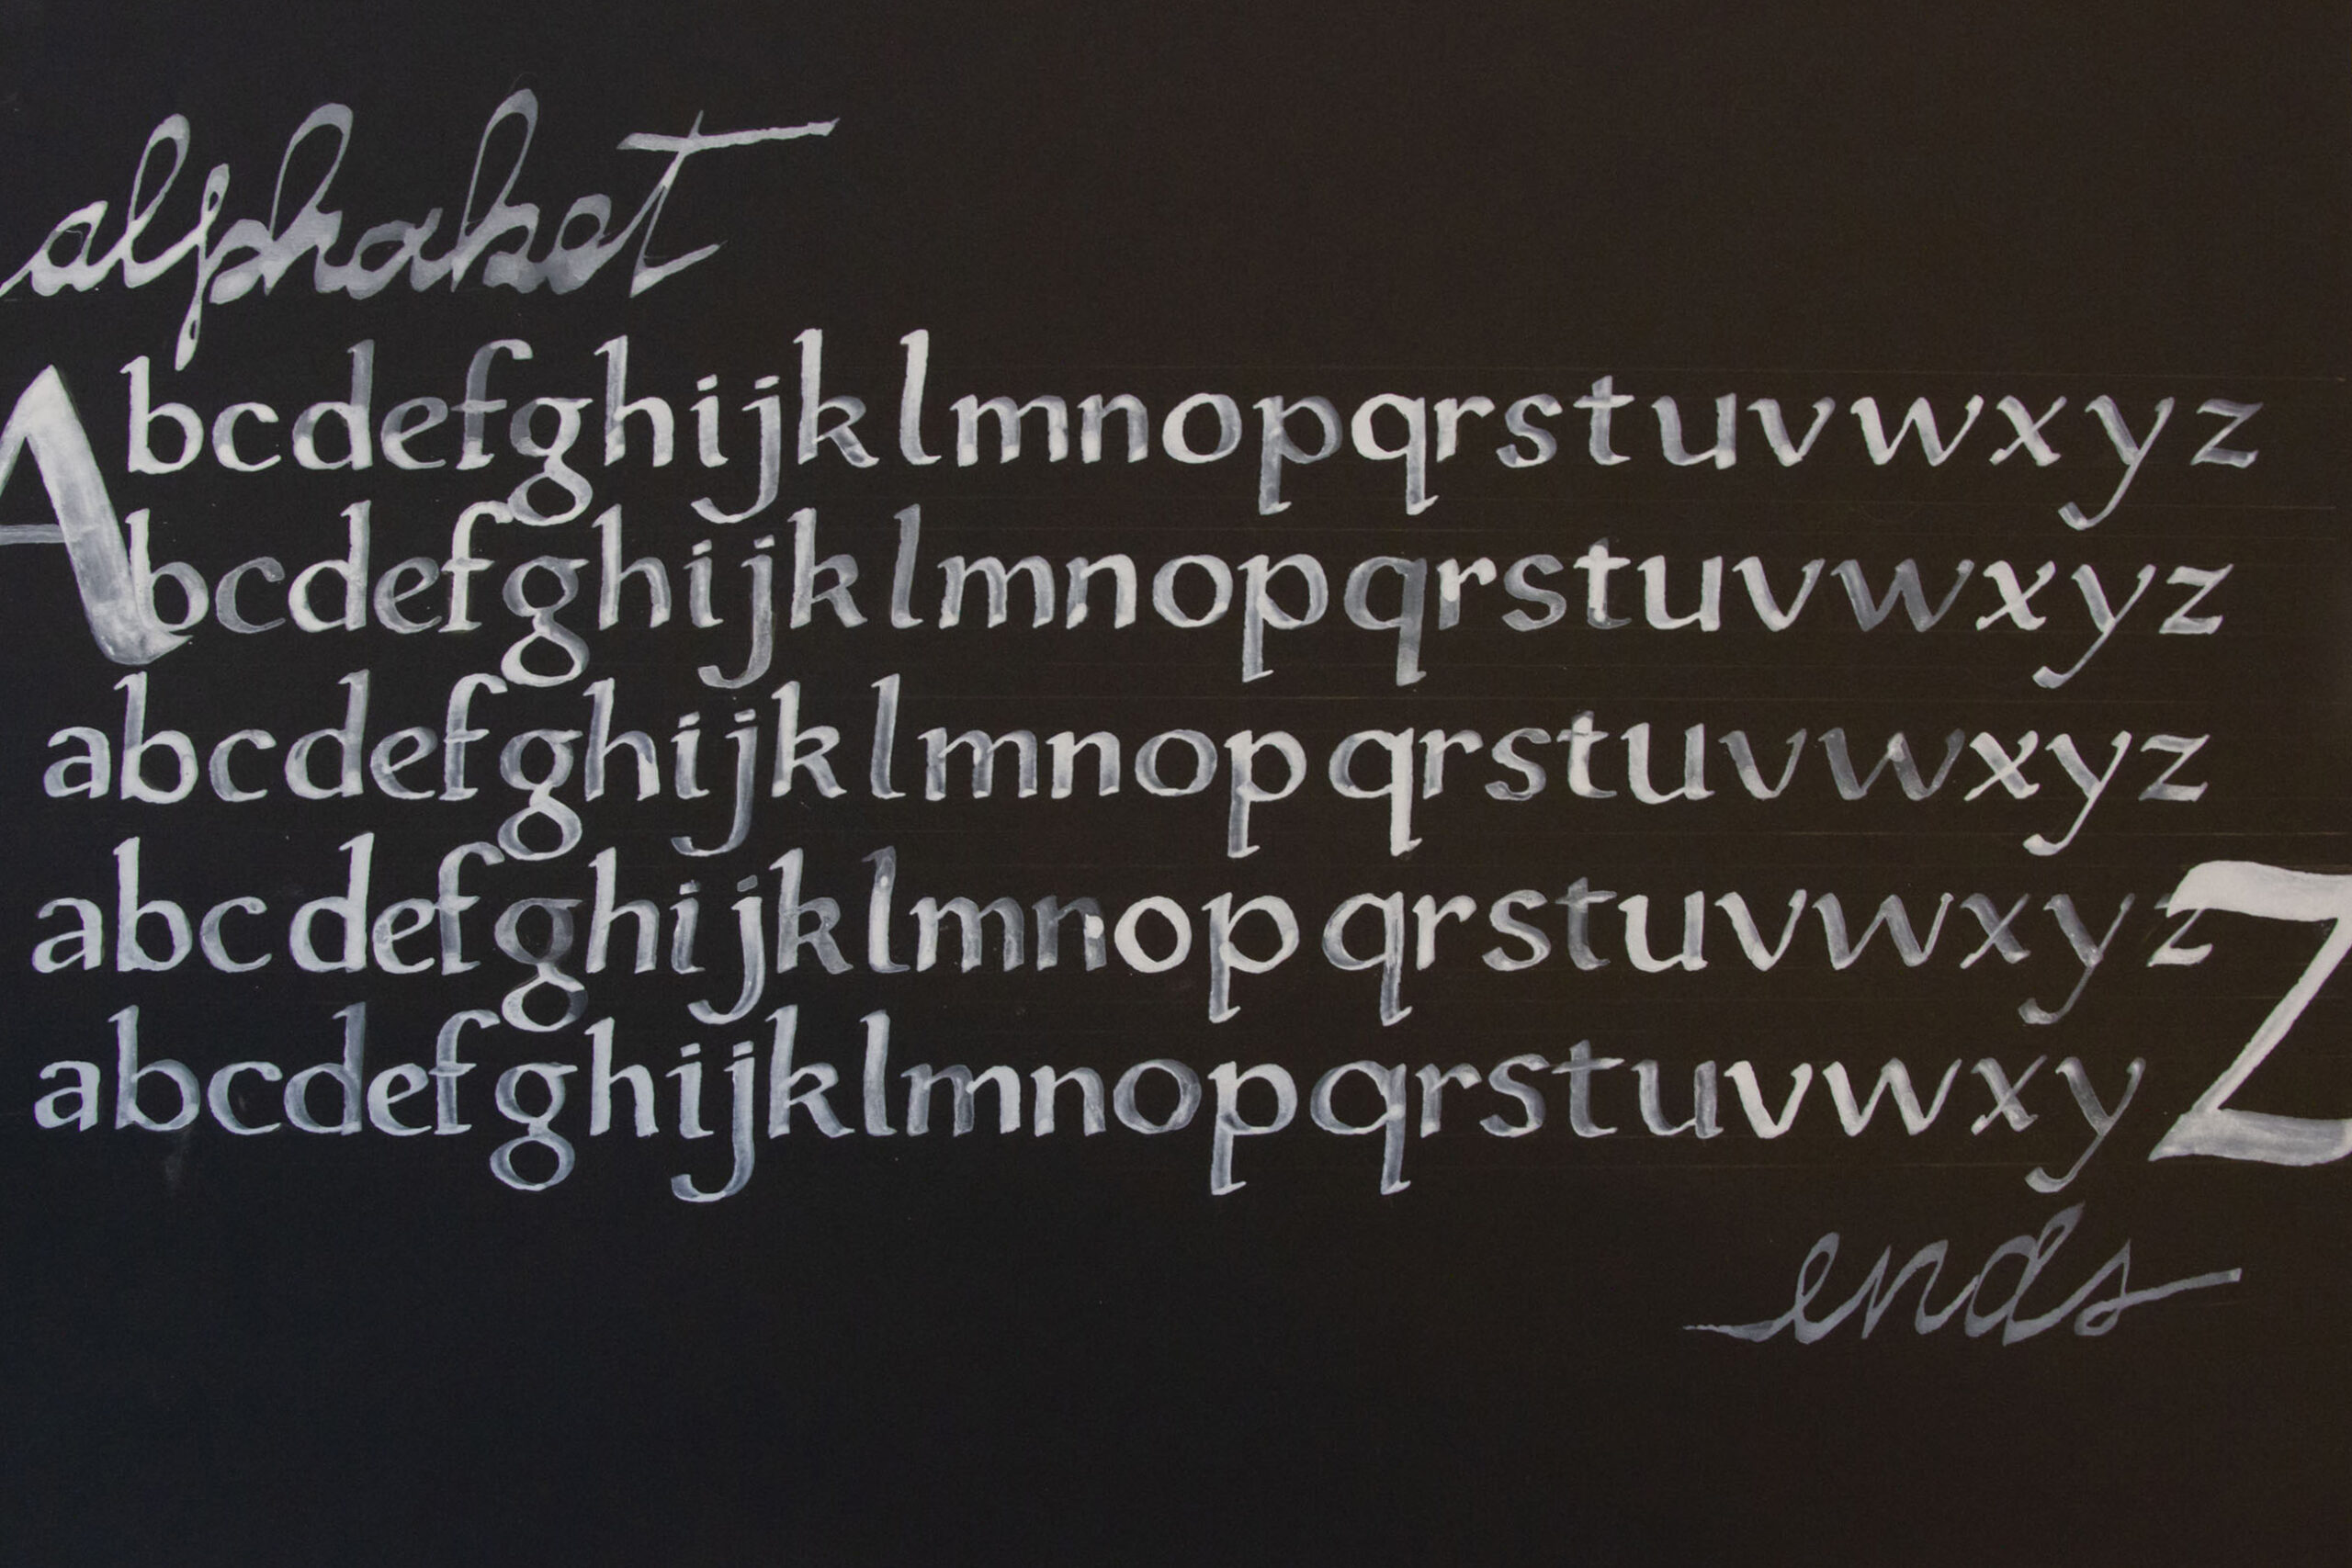 alphabet
Abcdefghijklmnopqrstuvwxyz
bcdefghijklmnopqrstuvwxyz
abcdefghijklmnopqrstuvwxyz
abcdefghijklmnopqrstuvwxyz
abcdefghijklmnopqrstuvwxyZ
ends